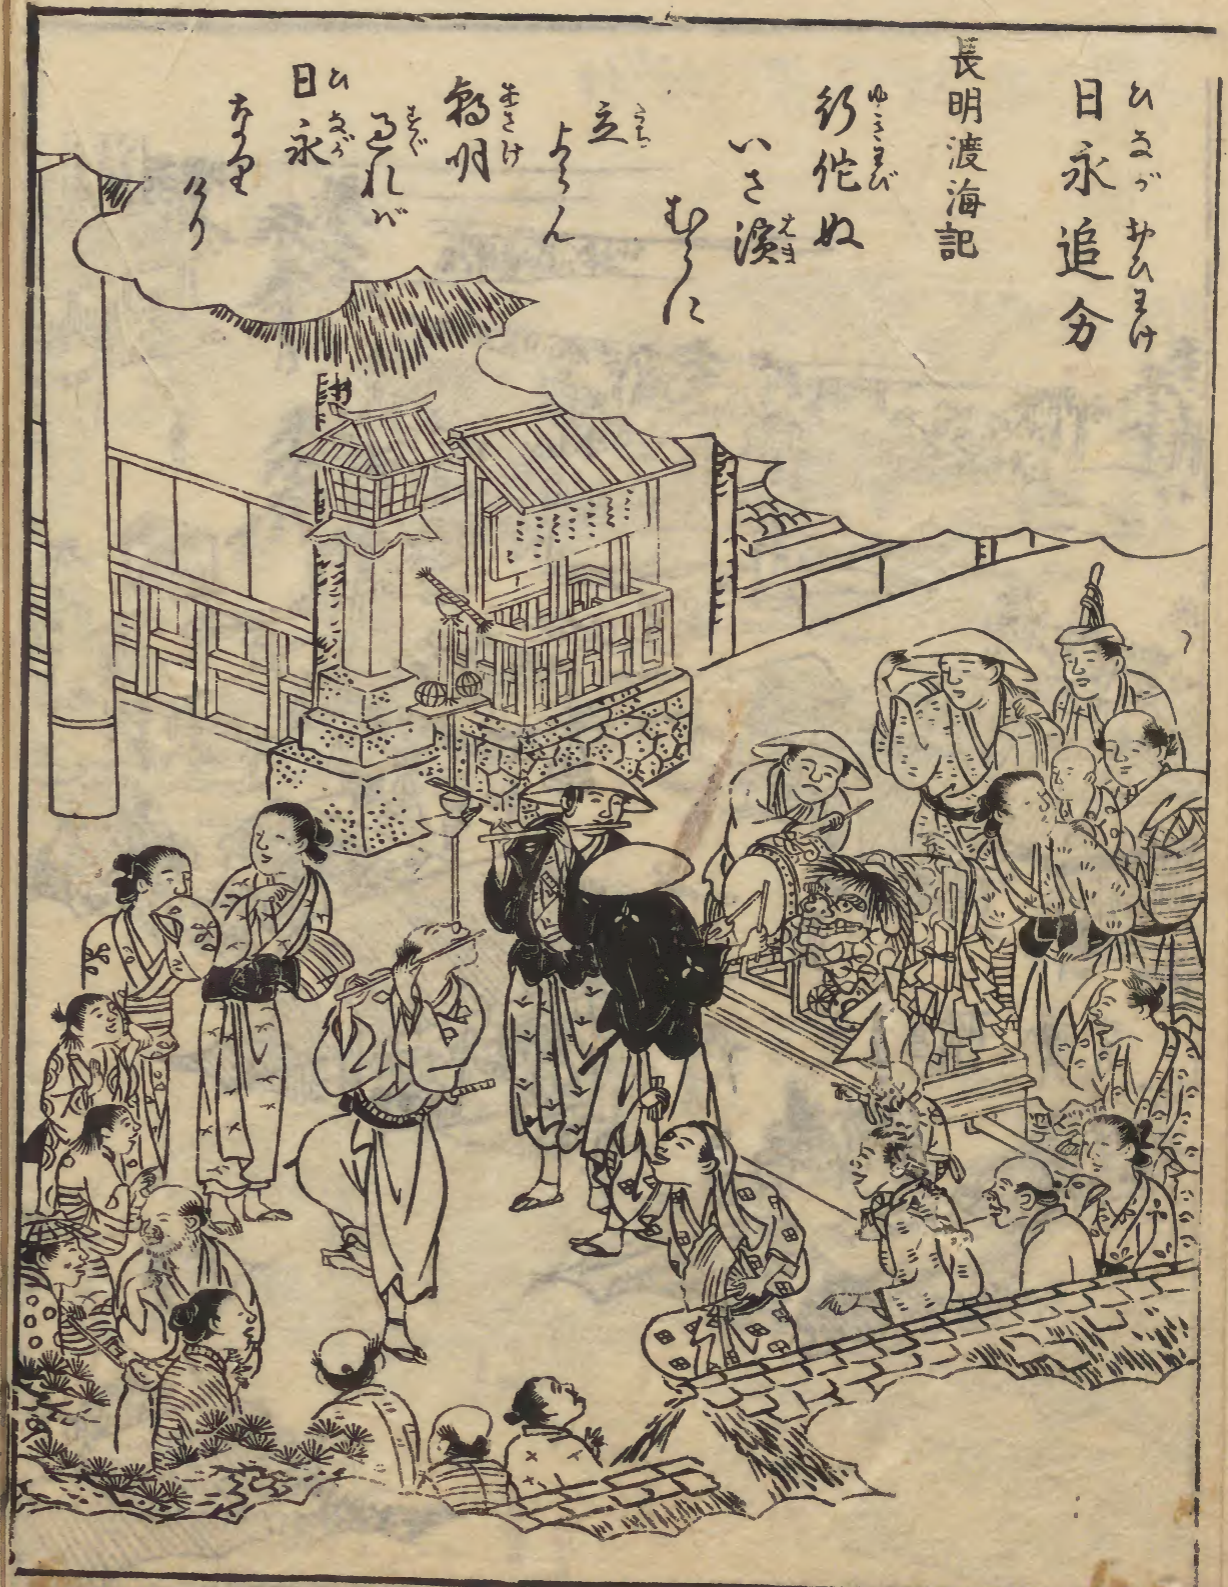 ひながおひわけ
日永追分
長明渡海記
ゆきわび
行侘ぬ
はま
いさ濱
むらに
たち
立
よらん
あさけ
朝明
すぐ
過れば
ひなが
日永
なり
けり